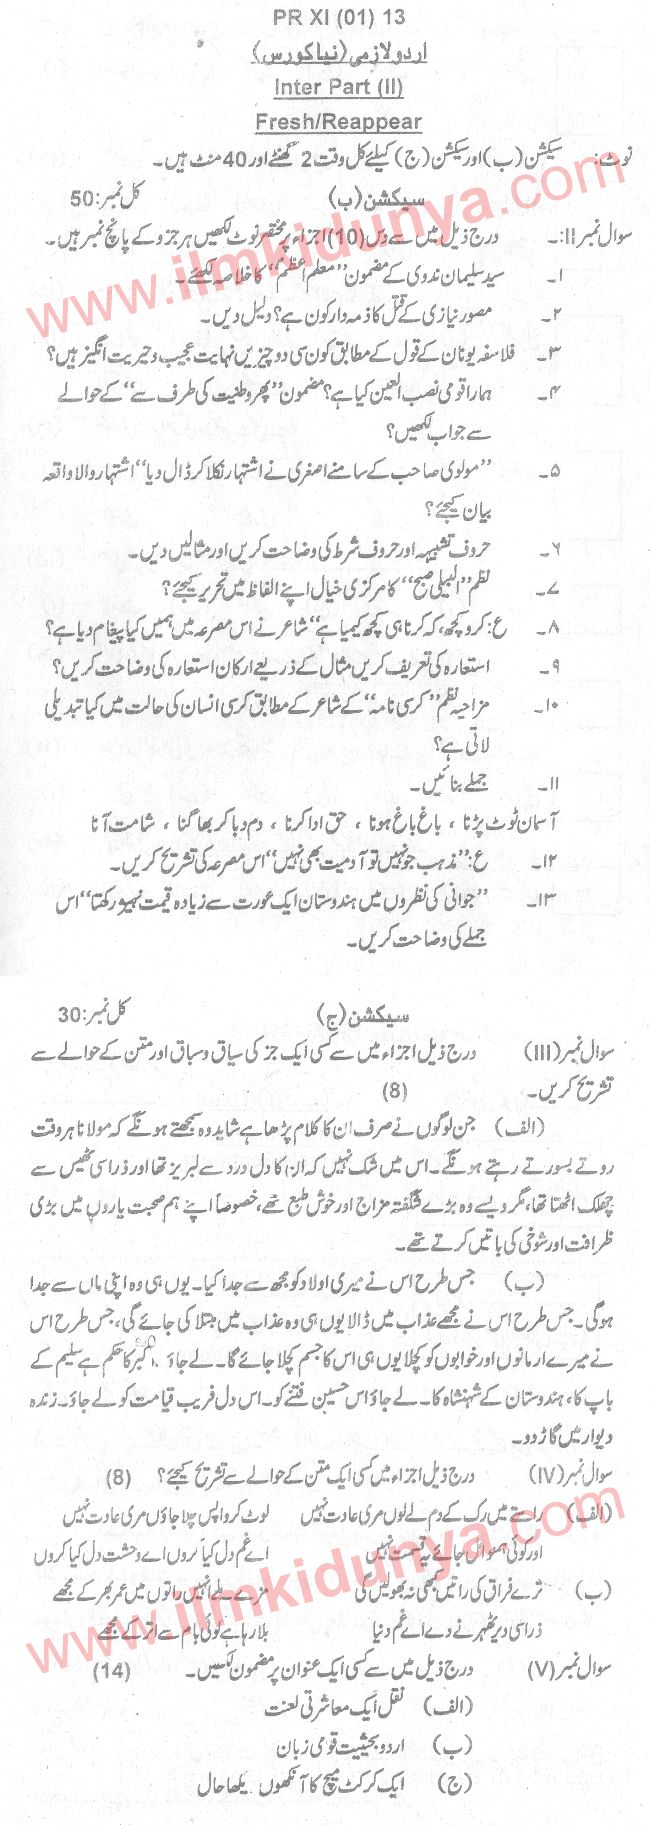 PR XI (01) 13
اردو لازمی (نیا کورس)
Inter Part (II)
Fresh/Reappear
نوٹ: سیکشن (ب) اور سیکشن (ج) کیلئے کل وقت 2 گھنٹے اور 40 منٹ ہیں۔
سیکشن (ب) کل نمبر: 50
سوال نمبر II:۔ درج ذیل میں سے دس (10) اجزاء پر مختصر نوٹ لکھیں ہر جزو کے پانچ نمبر ہیں۔
۱۔ سید سلیمان ندوی کے مضمون "معلم اعظم" کا خلاصہ لکھئے۔
۲۔ مصور نیازی کے قتل کا ذمہ دار کون ہے؟ دلیل دیں۔
۳۔ فلاسفہ یونان کے قول کے مطابق کون سی دو چیزیں نہایت عجیب و حیرت انگیز ہیں؟
۴۔ ہمارا قومی نصب العین کیا ہے؟ مضمون "پھر وطنیت کی طرف سے" کے حوالے
سے جواب لکھیں؟
۵۔ "مولوی صاحب کے سامنے اصغری نے اشتہار نکلا کر ڈال دیا" اشتہار والا واقعہ
بیان کیجئے؟
۶۔ حروف تشبیہہ اور حروف شرط کی وضاحت کریں اور مثالیں دیں۔
۷۔ نظم "البیلی صبح" کا مرکزی خیال اپنے الفاظ میں تحریر کیجئے؟
۸۔ ع: کرو کچھ، کہ کرنا ہی کچھ کیمیا ہے" شاعر نے اس مصرعہ میں ہمیں کیا پیغام دیا ہے؟
۹۔ استعارہ کی تعریف کریں مثال کے ذریعے ارکان استعارہ کی وضاحت کریں؟
۱۰۔ مزاحیہ نظم "کرسی نامہ" کے شاعر کے مطابق کرسی انسان کی حالت میں کیا تبدیلی
لاتی ہے؟
۱۱۔ جملے بنائیں۔
آسمان ٹوٹ پڑنا ، باغ باغ ہونا ، حق ادا کرنا ، دم دبا کر بھاگنا ، شامت آنا
۱۲۔ ع: "مذہب جو نہیں تو آدمیت بھی نہیں" اس مصرعہ کی تشریح کریں۔
۱۳۔ "جوانی کی نظروں میں ہندوستان ایک عورت سے زیادہ قیمت نہیں رکھتا" اس
جملے کی وضاحت کریں۔
سیکشن (ج) کل نمبر: 30
سوال نمبر (III) درج ذیل اجزاء میں سے کسی ایک جز کی سیاق و سباق اور متن کے حوالے سے
تشریح کریں۔ (8)
(الف) جن لوگوں نے صرف ان کا کلام پڑھا ہے شاید وہ سمجھتے ہونگے کہ مولانا ہر وقت
روتے بسورتے رہتے ہونگے۔ اس میں شک نہیں کہ ان کا دل درد سے لبریز تھا اور ذرا سی ٹھیس سے
چھلک اٹھتا تھا، مگر ویسے وہ بڑے شگفتہ مزاج اور خوش طبع تھے، خصوصاً اپنے ہم صحبت یاروں میں بڑی
ظرافت اور شوخی کی باتیں کرتے تھے۔
(ب) جس طرح اس نے میری اولاد کو مجھ سے جدا کیا۔ یوں ہی وہ اپنی ماں سے جدا
ہوگی۔ جس طرح اس نے مجھے عذاب میں ڈالا یوں ہی وہ عذاب میں مبتلا کی جائے گی، جس طرح اس
نے میرے ارمانوں اور خوابوں کو کچلا یوں ہی اس کا جسم کچلا جائے گا۔ لے جاؤ اکبر کا حکم ہے سلیم کے
باپ کا، ہندوستان کے شہنشاہ کا۔ لے جاؤ اس حسین فتنے کو۔ اس دل فریب قیامت کو لے جاؤ۔ زندہ
دیوار میں گاڑ دو۔
سوال نمبر (IV) درج ذیل اجزاء میں کسی ایک متن کے حوالے سے تشریح کیجئے؟ (8)
(الف) راستے میں رک کے دم لے لوں مری عادت نہیں لوٹ کر واپس چلا جاؤں مری عادت نہیں
اور کوئی ہمنوا مل جائے یہ قسمت نہیں اے غم دل کیا کروں اے وحشت دل کیا کروں
(ب) ترے فراق کی راتیں کبھی نہ بھولیں گی مزے ملے انہیں راتوں میں عمر بھر کے مجھے
ذرا سی دیر ٹھہرنے دے اے غم دنیا بلا رہا ہے کوئی بام سے اتر کے مجھے
سوال نمبر (V) درج ذیل میں سے کسی ایک عنوان پر مضمون لکھیں۔ (14)
(الف) نقل ایک معاشرتی لعنت
(ب) اردو بحیثیت قومی زبان
(ج) ایک کرکٹ میچ کا آنکھوں یکھا حال
www.ilmkidunya.com
www.ilmkidunya.com